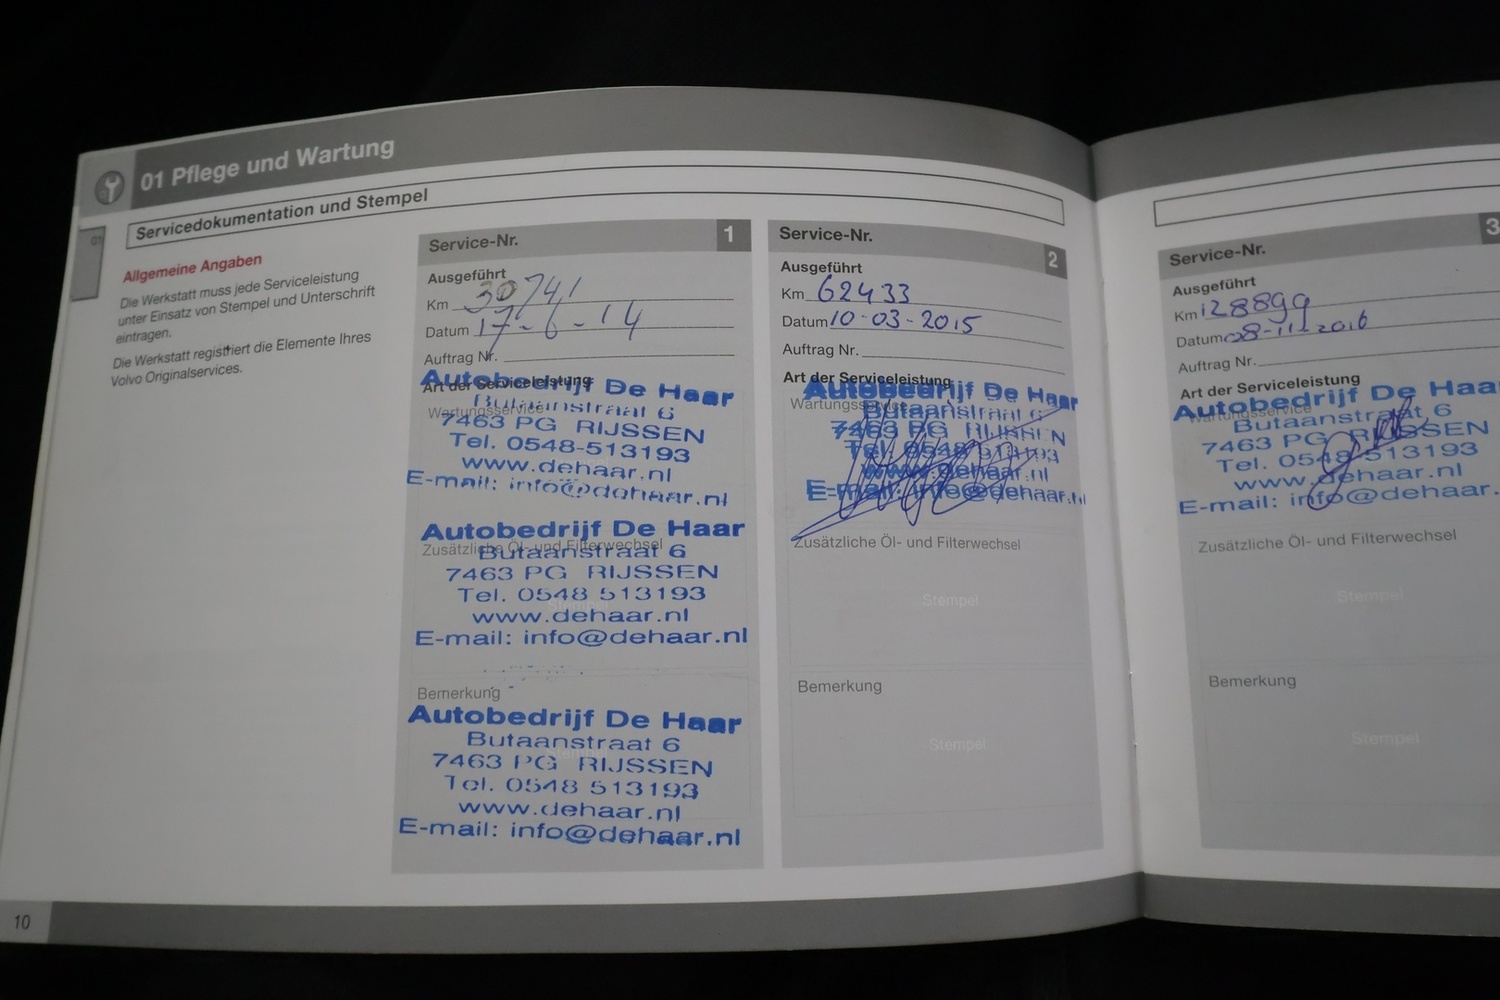 01 Pflege und Wartung
Servicedokumentation und Stempel
01
Allgemeine Angaben
Die Werkstatt muss jede Serviceleistung
unter Einsatz von Stempel und Unterschrift
eintragen.
Die Werkstatt registriert die Elemente Ihres
Volvo Originalservices.
Service-Nr. 1
Ausgeführt
Km 30741
Datum 17-6-14
Auftrag Nr.
Art der Serviceleistung
Wartungsservice
Autobedrijf De Haar
Butaanstraat 6
7463 PG RIJSSEN
Tel. 0548-513193
www.dehaar.nl
E-mail: info@dehaar.nl
Zusätzliche Öl- und Filterwechsel
Stempel
Autobedrijf De Haar
Butaanstraat 6
7463 PG RIJSSEN
Tel. 0548 513193
www.dehaar.nl
E-mail: info@dehaar.nl
Bemerkung
Stempel
Autobedrijf De Haar
Butaanstraat 6
7463 PG RIJSSEN
Tel. 0548 513193
www.dehaar.nl
E-mail: info@dehaar.nl
Service-Nr. 2
Ausgeführt
Km 62433
Datum 10-03-2015
Auftrag Nr.
Art der Serviceleistung
Wartungsservice
Autobedrijf De Haar
Butaanstraat 6
7463 PG RIJSSEN
Tel. 0548 513193
www.dehaar.nl
E-mail: info@dehaar.nl
Zusätzliche Öl- und Filterwechsel
Stempel
Bemerkung
Stempel
Service-Nr. 3
Ausgeführt
Km 128899
Datum 08-11-2016
Auftrag Nr.
Art der Serviceleistung
Wartungsservice
Autobedrijf De Haar
Butaanstraat 6
7463 PG RIJSSEN
Tel. 0548-513193
www.dehaar.nl
E-mail: info@dehaar.
Zusätzliche Öl- und Filterwechsel
Stempel
Bemerkung
Stempel
10